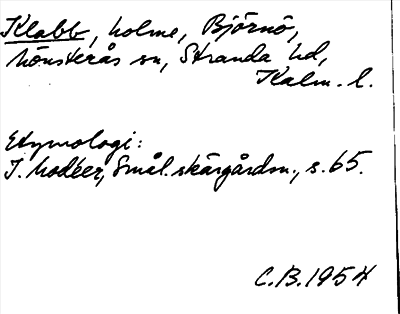 Klabb, holme, Björnö,
Mönsterås sn, Stranda hd,
Kalm. l.
Etymologi:
I. Modéer, Smål. skärgårdsn., s. 65.
C.B. 1954